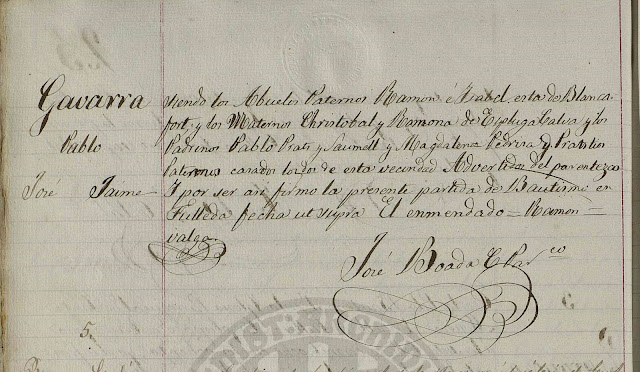 Gavarra
Pablo
José Jaime
siendo los Abuelos Paternos Ramon é Isabel, esta de Blanca-
fort, y los Maternos Christobal y Ramona de Esplugacalva y los
Padrinos Pablo Prats y Saumell y Magdalena Pedrisa y Prats tios
Paternos casados todos de esta vecindad Advertidos del parentezco
Y por ser asi firmo la presente partida de Bautismo en
Fulleda fecha ut supra El enmendado = Ramon =
valga.
José Boada Ebar^co
5.